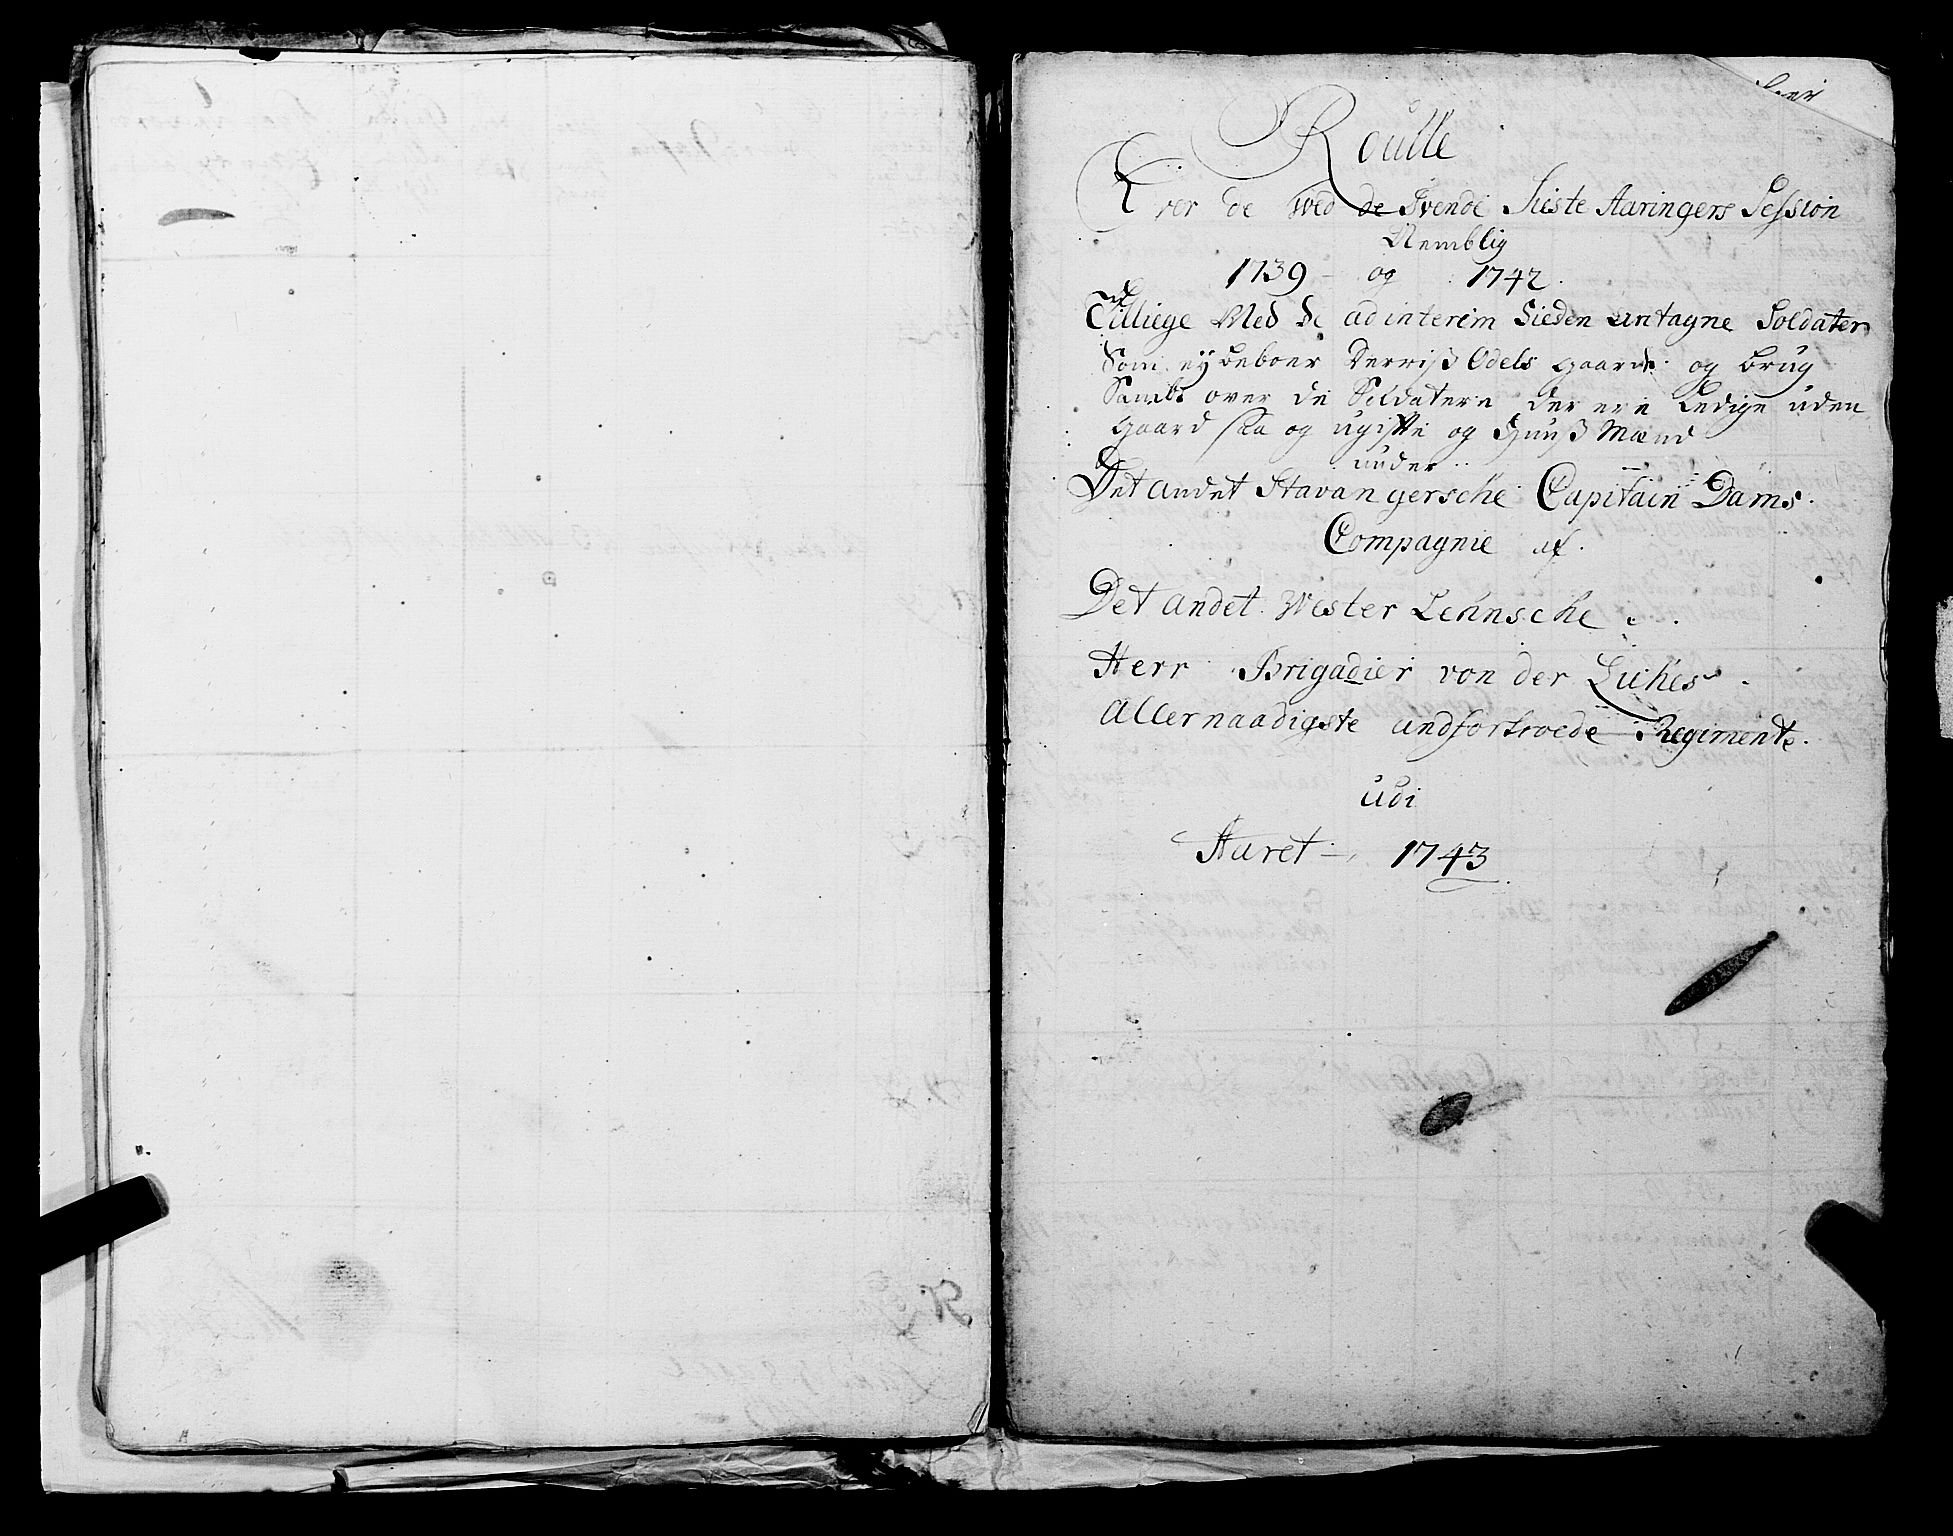 Roulle
de wed de Tvende Siste Aaringers Session
Nemblig
1739 – og 1742.
Tilliege Med de ad interim Sieden antagne Soldater
Som ey beboer Derriß Odels gaarde og brug
Sambt over de Soldatere der ere Ledige uden
gaard og ugifte og Huuß Mænd
under
Det andet Stavangersche Capitain Dams
Compagnie af
Det andet Wester Lehnsche
Herr Brigadier von der Lühes
Allernaadigste andfortroede Regimente.
udi
Aaret – 1743